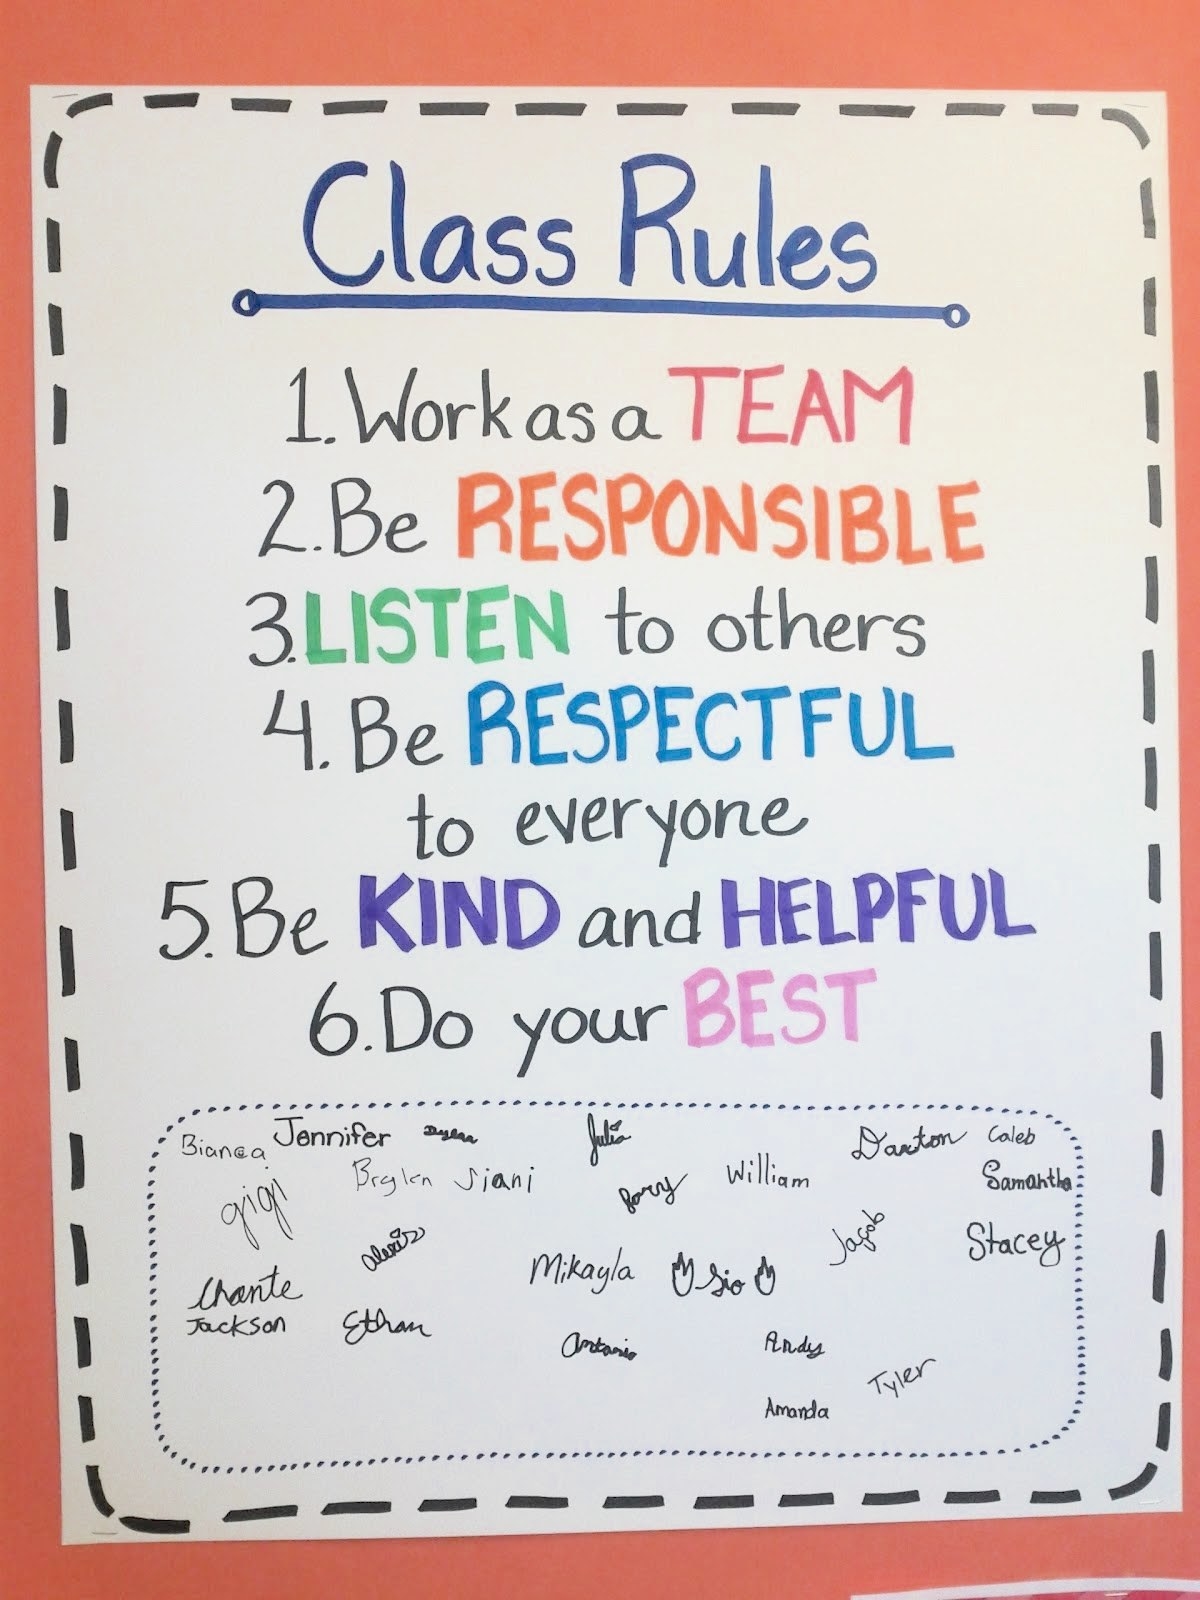 Class Rules
1. Work as a TEAM
2. Be RESPONSIBLE
3. LISTEN to others
4. Be RESPECTFUL
to everyone
5. Be KIND and HELPFUL
6. Do your BEST
Bianca Jennifer Julia Daxton Caleb
Siani William Samantha
gigi
Alexis Mikayla Sio Jacob Stacey
Chante
Jackson Ethan Antonio Andy
Tyler
Amanda